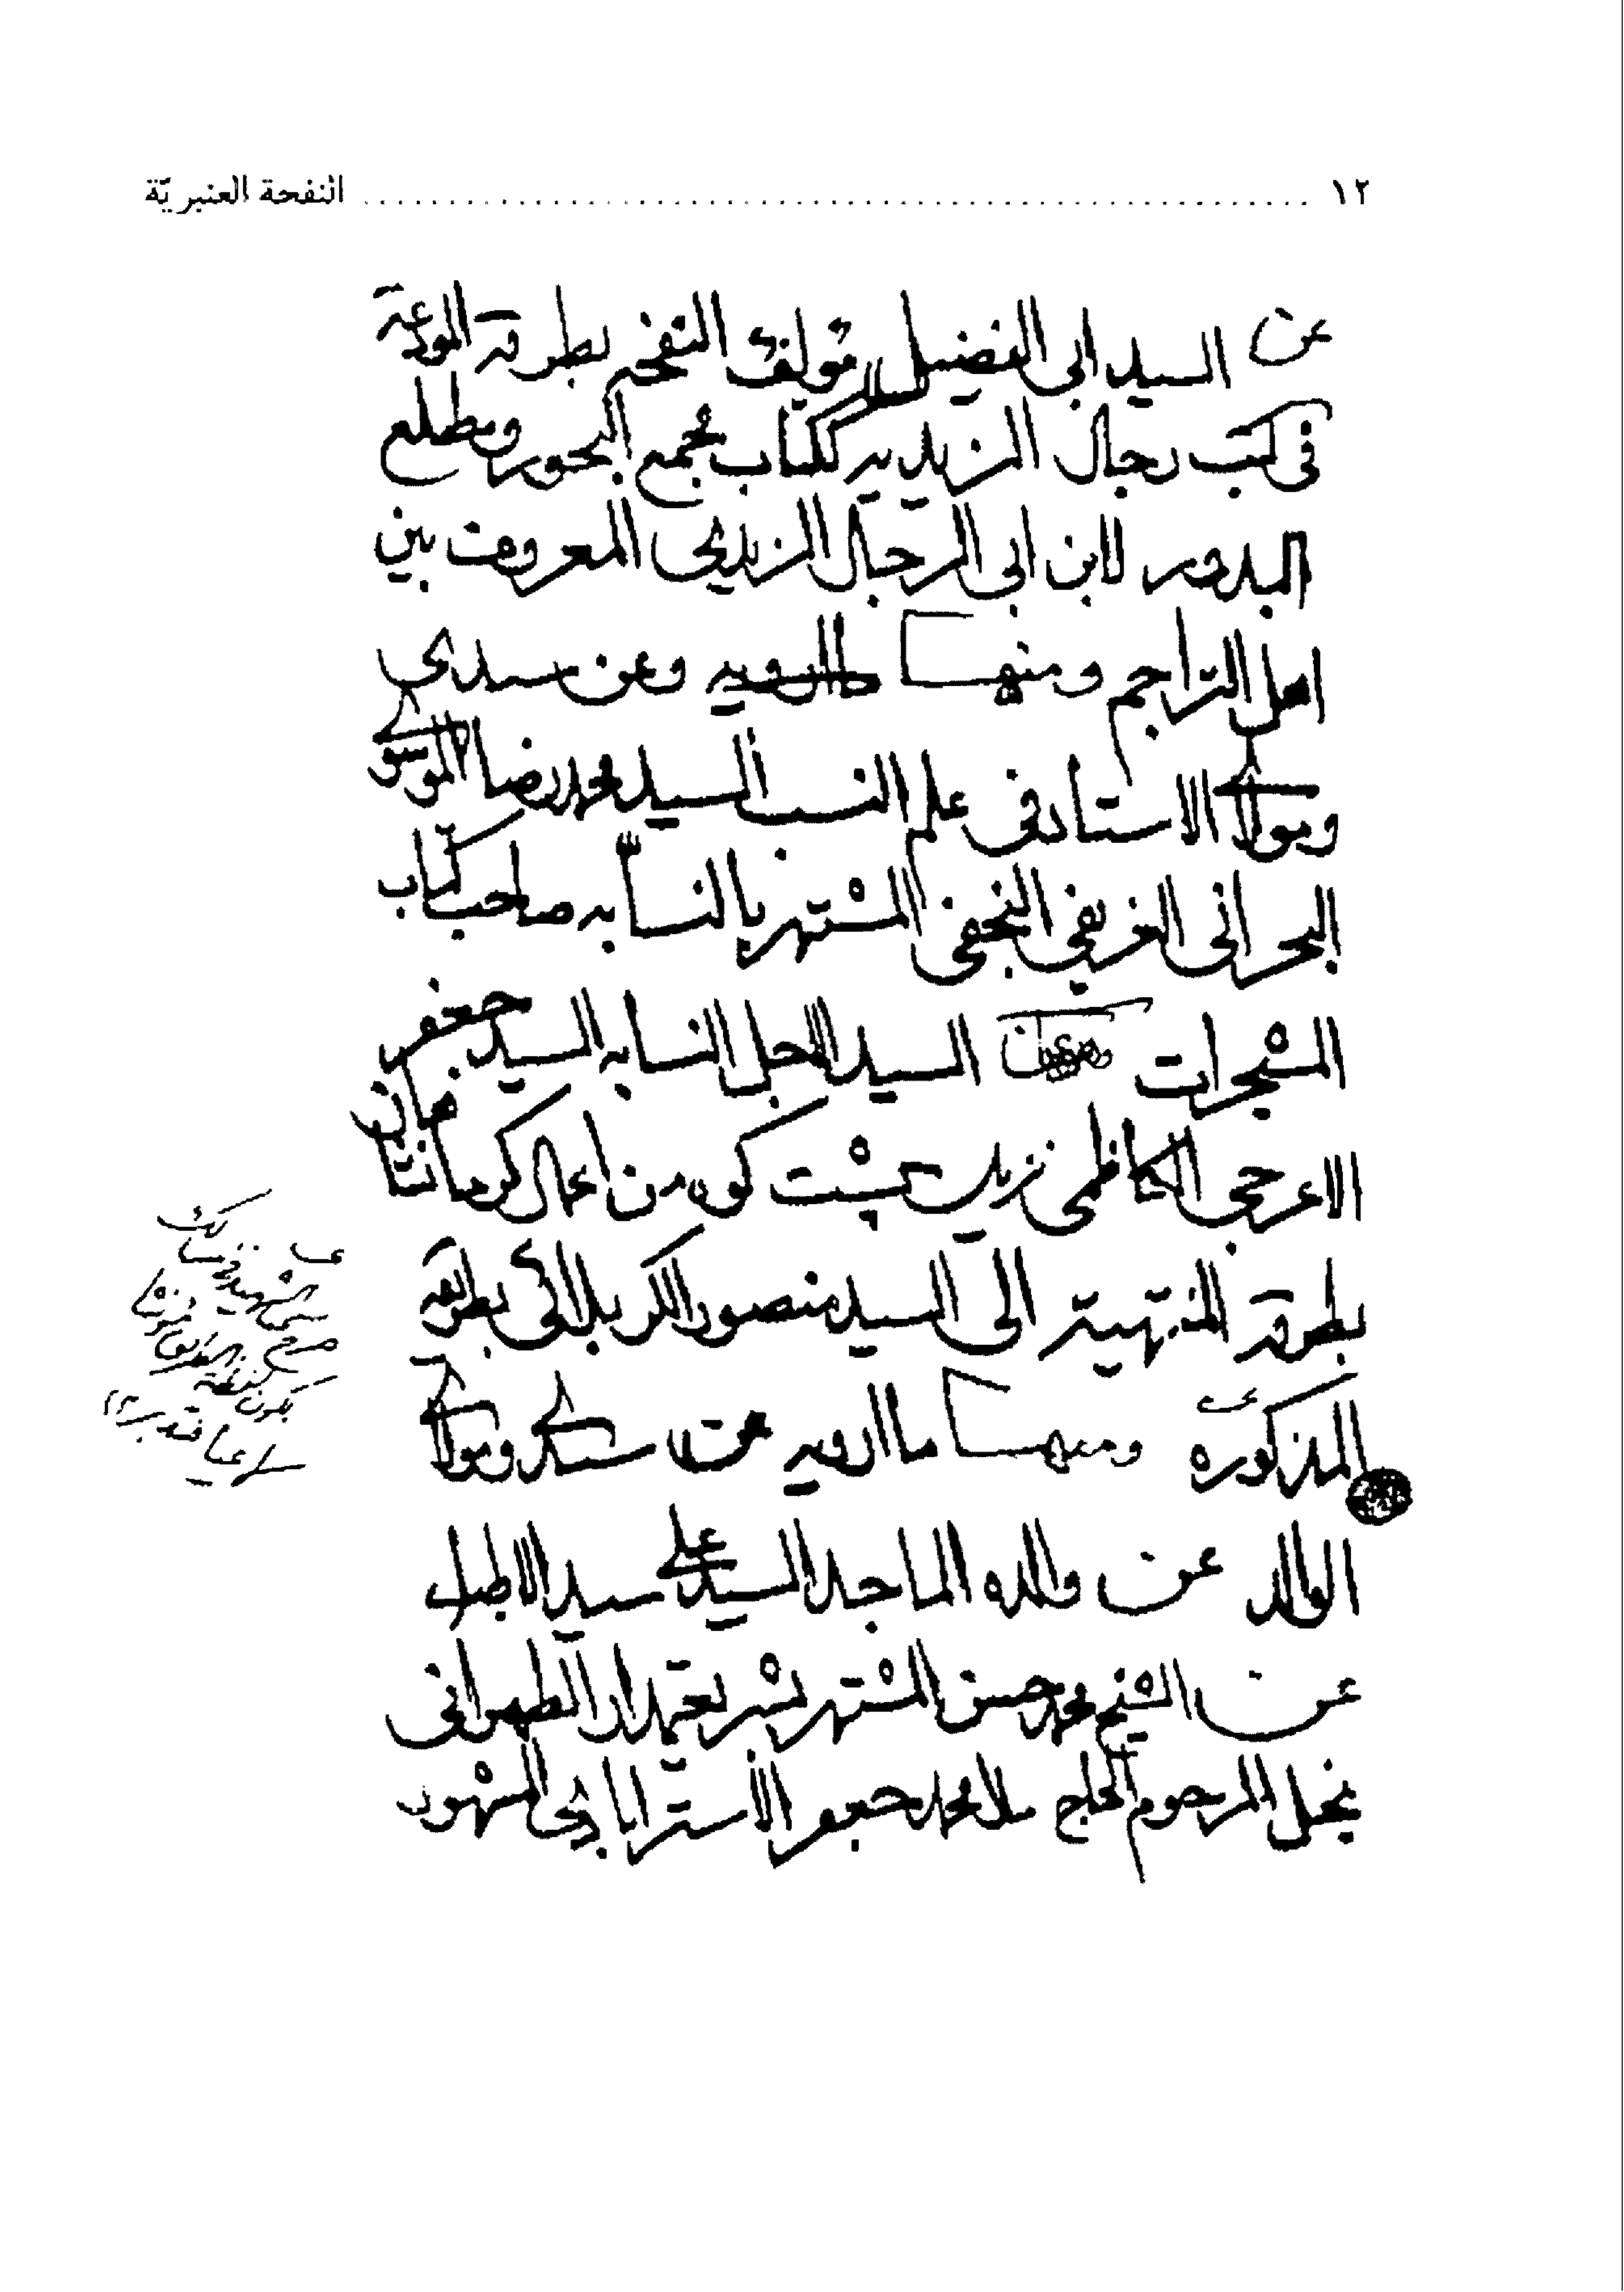 ١٢ النفحة العنبريّة
عن السيد ابى الفضيل مؤلف النفحه بطرقه المودعة
فى كتب رجال الزيديه ككتاب مجمع البحور ومطلع
البدور لابن ابى الرجال الزيدى المعروف بين
اهل التراجم ومنها ما ارويه وعن سيدى
ومولاى الاستاد فى علم النسب السيد محمد رضا الموسوى
البحرانى الغريفى النجفى المشتهر بالنسابه صاحب كتاب
المشجرات السيد الاجل النسابه السيد جعفر
الاعرجى الكاظمى نزيل پشت كوه من اعمال كرمانشاهان
بطرقه المنتهية الى السيد منصور الكربلائى بطرقه
المذكوره ومنها ما ارويه عن سيدى ومولاى
الوالد عن والده الماجد السيد على سيد الاطباء
عن الشيخ محمد حسن المشتهر بشريعتمدار الطهرانى
نجل المرحوم الحاج ملا محمد جعفر الاسترابادى المشهور